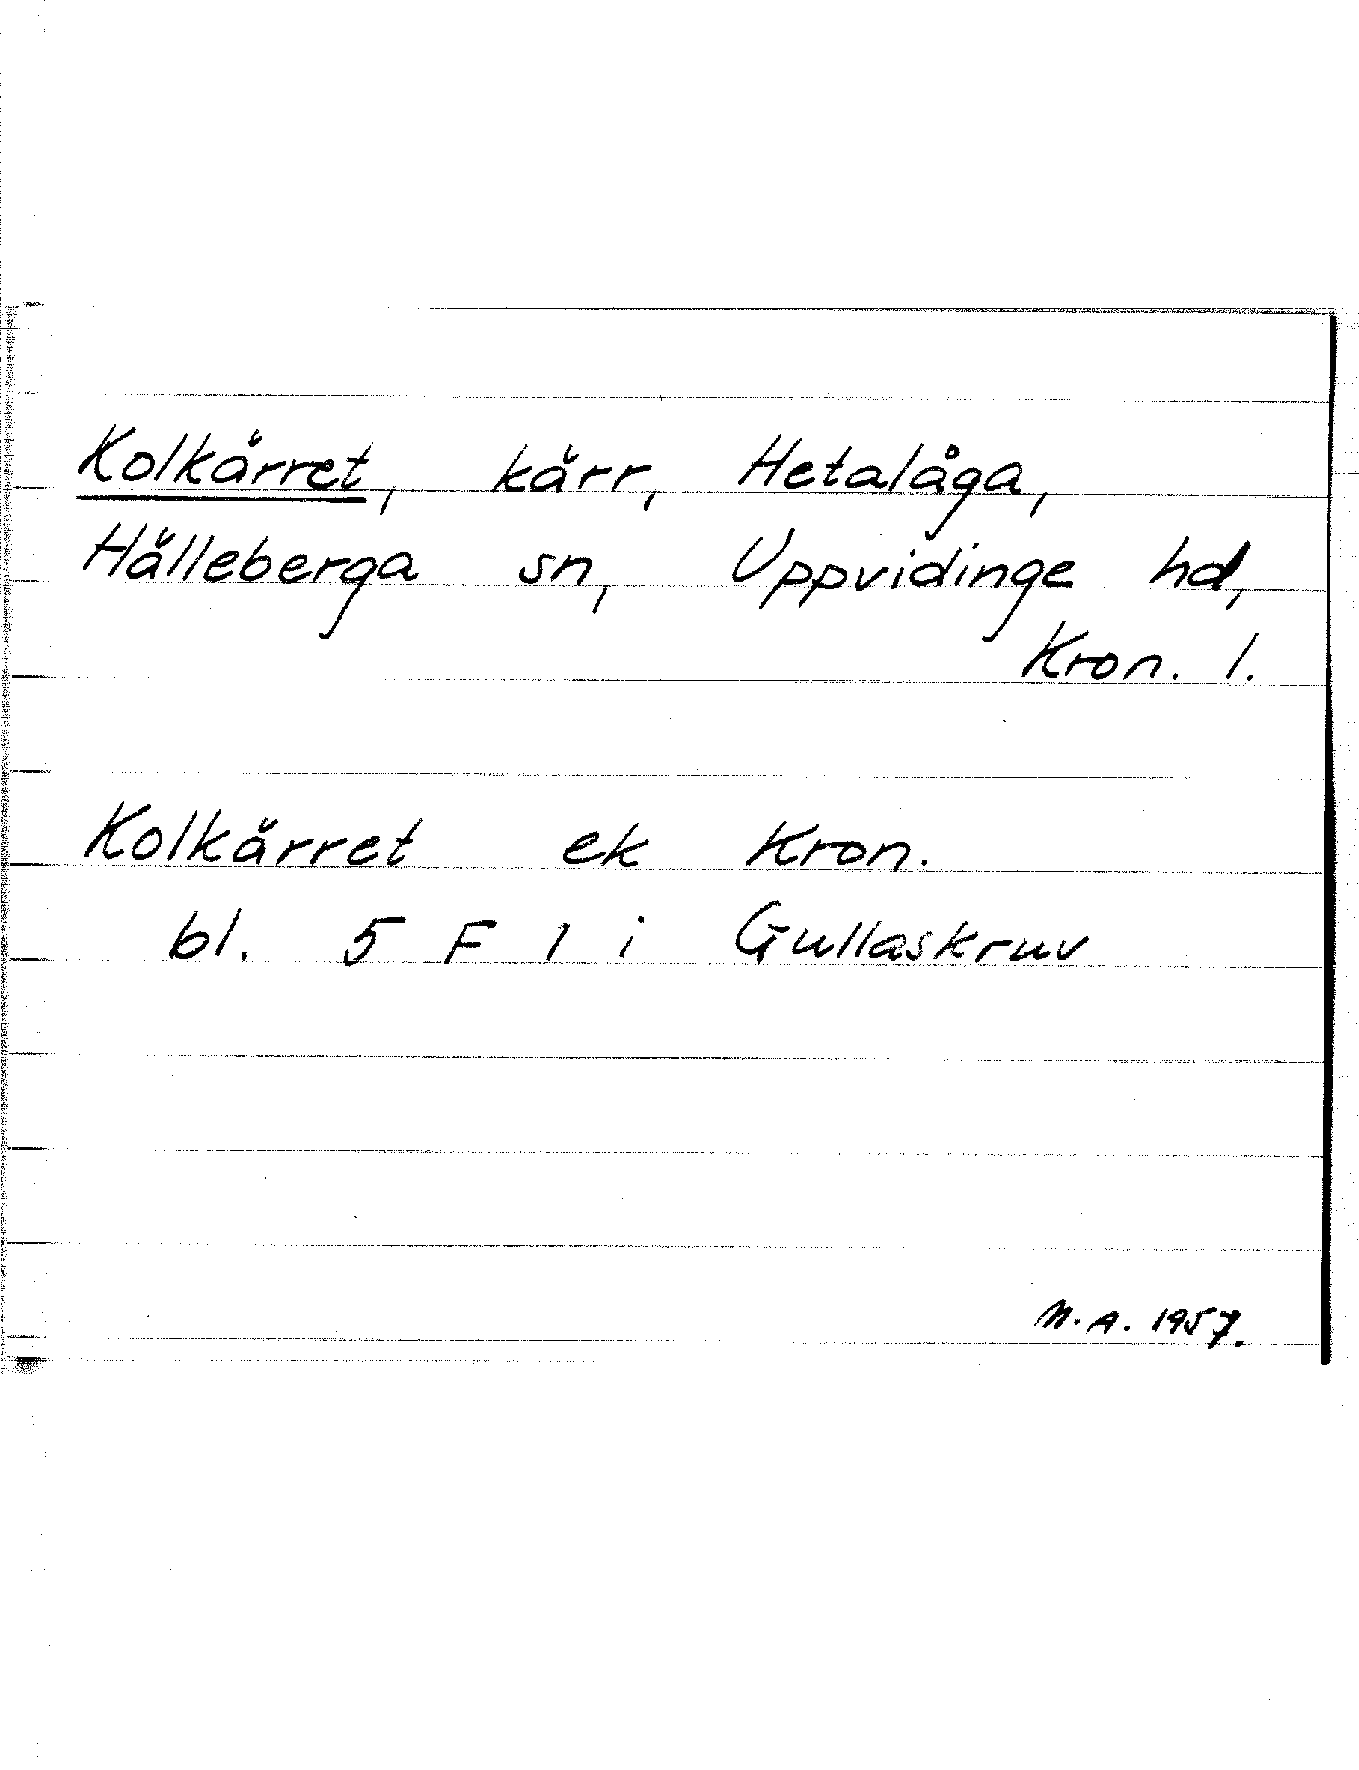 Kolkärret, kärr, Hetalåga,
Hälleberga sn, Uppvidinge hd,
Kron. l.
Kolkärret ek Kron.
bl. 5 F 1 i Gullaskruv
M.A. 1957.